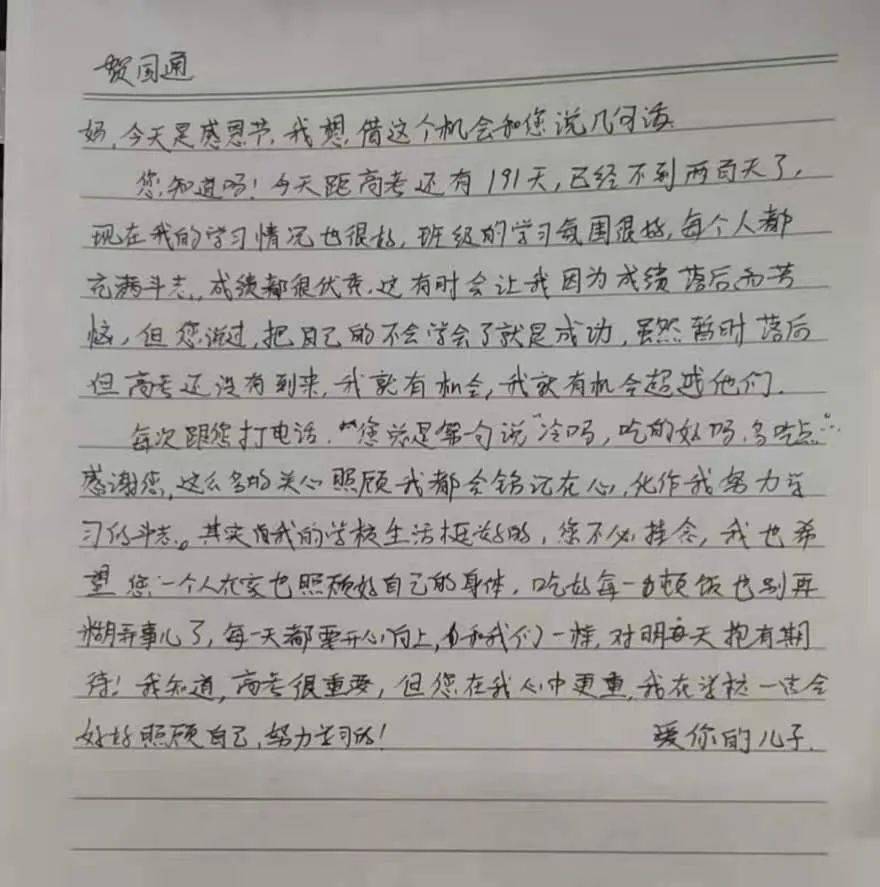 贺国通
妈,今天是感恩节,我想借这个机会和您说几句话
您知道吗!今天距高考还有191天,已经不到两百天了,
现在我的学习情况也很好,班级的学习氛围很好,每个人都
充满斗志,成绩都很优秀,这有时会让我因为成绩落后而苦
恼,但您说过,把自己的不会学会了就是成功,虽然暂时落后
但高考还没有到来,我就有机会,我就有机会超越他们.
每次跟您打电话,"您总是第一句说"冷吗,吃的好吗,多吃点"
感谢您,这么多的关心照顾我都会铭记在心,化作我努力学
习的斗志。其实我的学校生活挺好的,您不必挂念,我也希
望您一个人在家也照顾好自己的身体,吃好每一顿饭也别再
糊弄事儿了,每一天都要开心向上,和我们一样,对明天抱有期
待!我知道,高考很重要,但您在我心中更重,我在学校一定会
好好照顾自己,努力学习的!
爱你的儿子.